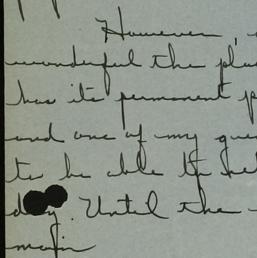 However,
wonderful the
has its permanent
and one of my
to be able to
day. Until the
main